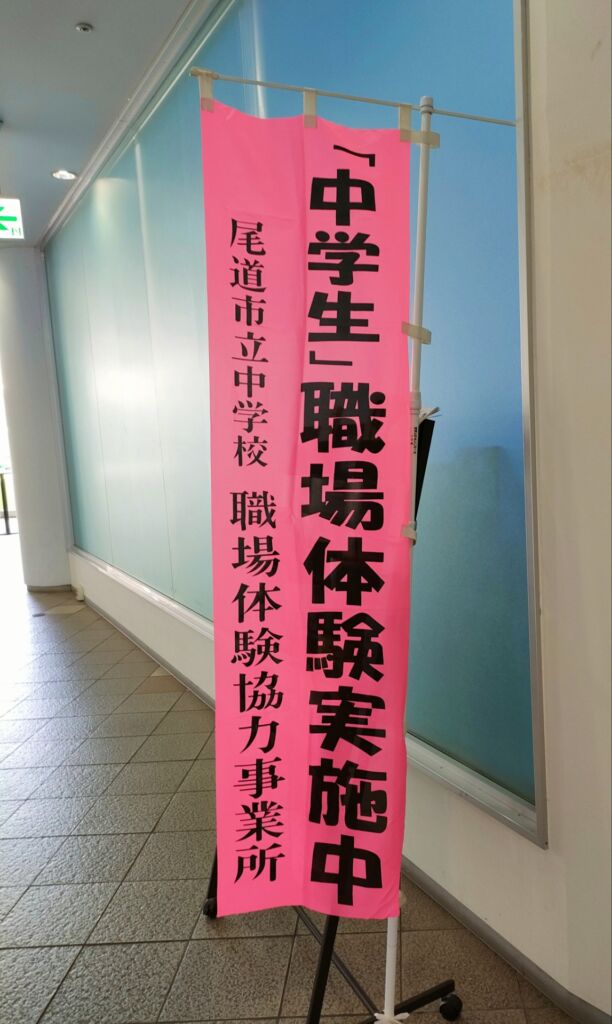 「中学生」職場体験実施中
尾道市立中学校 職場体験協力事業所